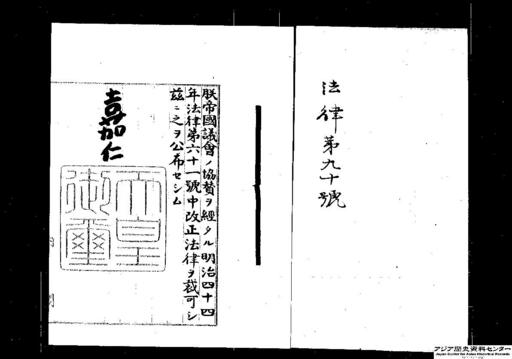 法律第九十號
朕帝國議會ノ協贊ヲ經タル明治四十四
年法律第六十一號中改正法律ヲ裁可シ
茲ニ之ヲ公布セシム
嘉仁
天皇
御璽
アジア歴史資料センター
Japan Center for Asian Historical Records